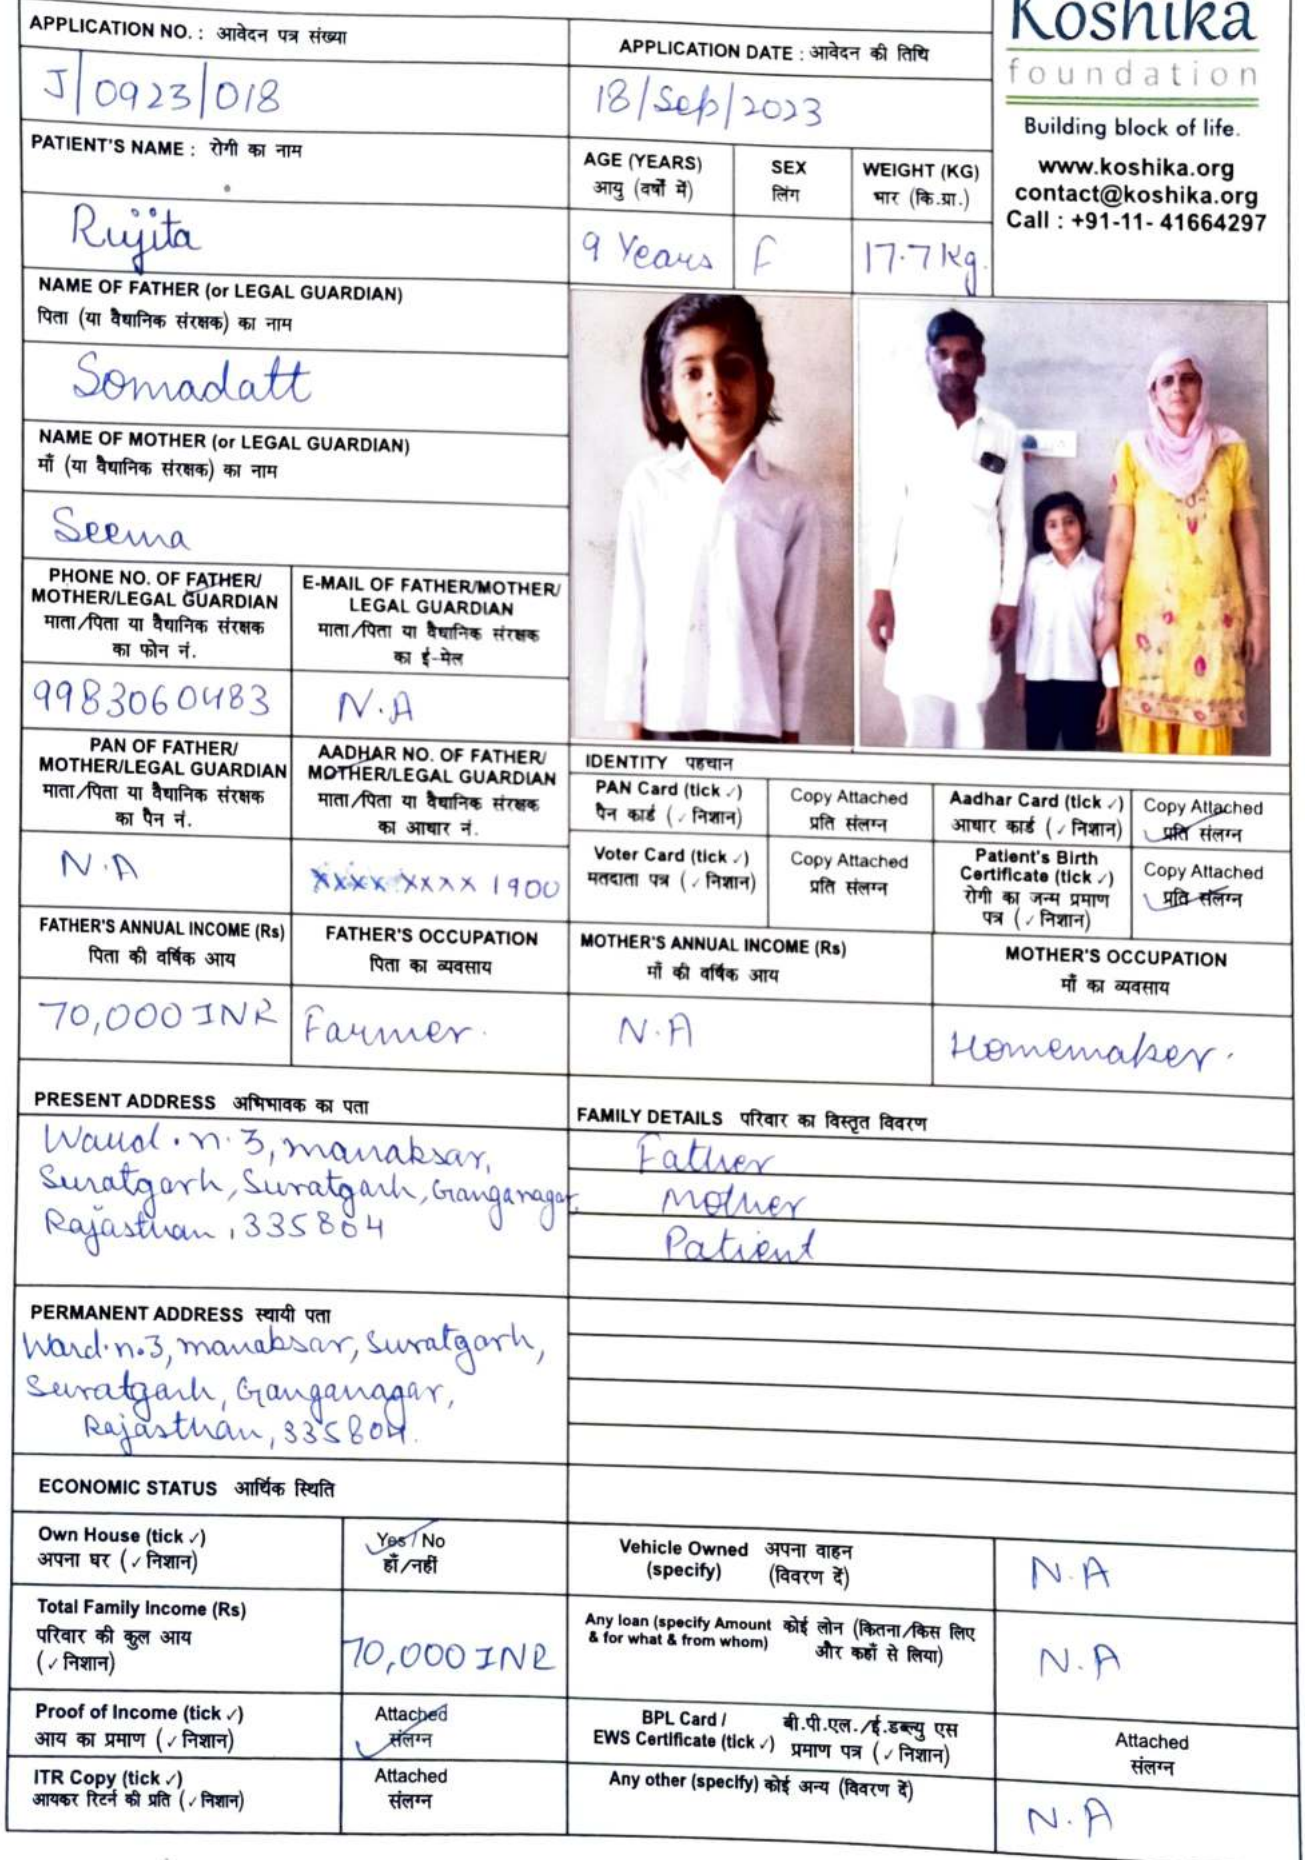 Koshika
foundation
Building block of life.
www.koshika.org
contact@koshika.org
Call : +91-11- 41664297
APPLICATION NO. : आवेदन पत्र संख्या
J/0923/018
APPLICATION DATE : आवेदन की तिथि
18/Sep/2023
PATIENT'S NAME : रोगी का नाम
Rijita
AGE (YEARS)
आयु (वर्षों में)
9 Years
SEX
लिंग
F
WEIGHT (KG)
भार (कि.ग्रा.)
17.7 Kg.
NAME OF FATHER (or LEGAL GUARDIAN)
पिता (या वैधानिक संरक्षक) का नाम
Somadatt
NAME OF MOTHER (or LEGAL GUARDIAN)
माँ (या वैधानिक संरक्षक) का नाम
Seema
PHONE NO. OF FATHER/
MOTHER/LEGAL GUARDIAN
माता/पिता या वैधानिक संरक्षक
का फोन नं.
9983060483
E-MAIL OF FATHER/MOTHER/
LEGAL GUARDIAN
माता/पिता या वैधानिक संरक्षक
का ई-मेल
N.A
PAN OF FATHER/
MOTHER/LEGAL GUARDIAN
माता/पिता या वैधानिक संरक्षक
का पैन नं.
N.A
AADHAR NO. OF FATHER/
MOTHER/LEGAL GUARDIAN
माता/पिता या वैधानिक संरक्षक
का आधार नं.
xxxx xxxx 1900
IDENTITY पहचान
PAN Card (tick ✓)
पैन कार्ड (✓ निशान)
Copy Attached
प्रति संलग्न
Aadhar Card (tick ✓)
आधार कार्ड (✓ निशान)
Copy Attached
प्रति संलग्न
Voter Card (tick ✓)
मतदाता पत्र (✓ निशान)
Copy Attached
प्रति संलग्न
Patient's Birth
Certificate (tick ✓)
रोगी का जन्म प्रमाण
पत्र (✓ निशान)
Copy Attached
प्रति संलग्न
FATHER'S ANNUAL INCOME (Rs)
पिता की वर्षिक आय
70,000 INR
FATHER'S OCCUPATION
पिता का व्यवसाय
Farmer.
MOTHER'S ANNUAL INCOME (Rs)
माँ की वर्षिक आय
N.A
MOTHER'S OCCUPATION
माँ का व्यवसाय
Homemaker.
PRESENT ADDRESS अभिभावक का पता
Ward. n. 3, manaksar,
Suratgarh, Suratgarh, Ganganagar,
Rajasthan, 335804
FAMILY DETAILS परिवार का विस्तृत विवरण
Father
Mother
Patient
PERMANENT ADDRESS स्थायी पता
Ward.n.3, manaksar, Suratgarh,
Suratgarh, Ganganagar,
Rajasthan, 335804.
ECONOMIC STATUS आर्थिक स्थिति
Own House (tick ✓)
अपना घर (✓ निशान)
Yes / No
हाँ/नहीं
Vehicle Owned अपना वाहन
(specify) (विवरण दें)
N.A
Total Family Income (Rs)
परिवार की कुल आय
(✓ निशान)
70,000 INR
Any loan (specify Amount कोई लोन (कितना/किस लिए
& for what & from whom) और कहाँ से लिया)
N.A
Proof of Income (tick ✓)
आय का प्रमाण (✓ निशान)
Attached
संलग्न
BPL Card / बी.पी.एल./ई.डब्ल्यु एस
EWS Certificate (tick ✓) प्रमाण पत्र (✓ निशान)
Attached
संलग्न
ITR Copy (tick ✓)
आयकर रिटर्न की प्रति (✓ निशान)
Attached
संलग्न
Any other (specify) कोई अन्य (विवरण दें)
N.A